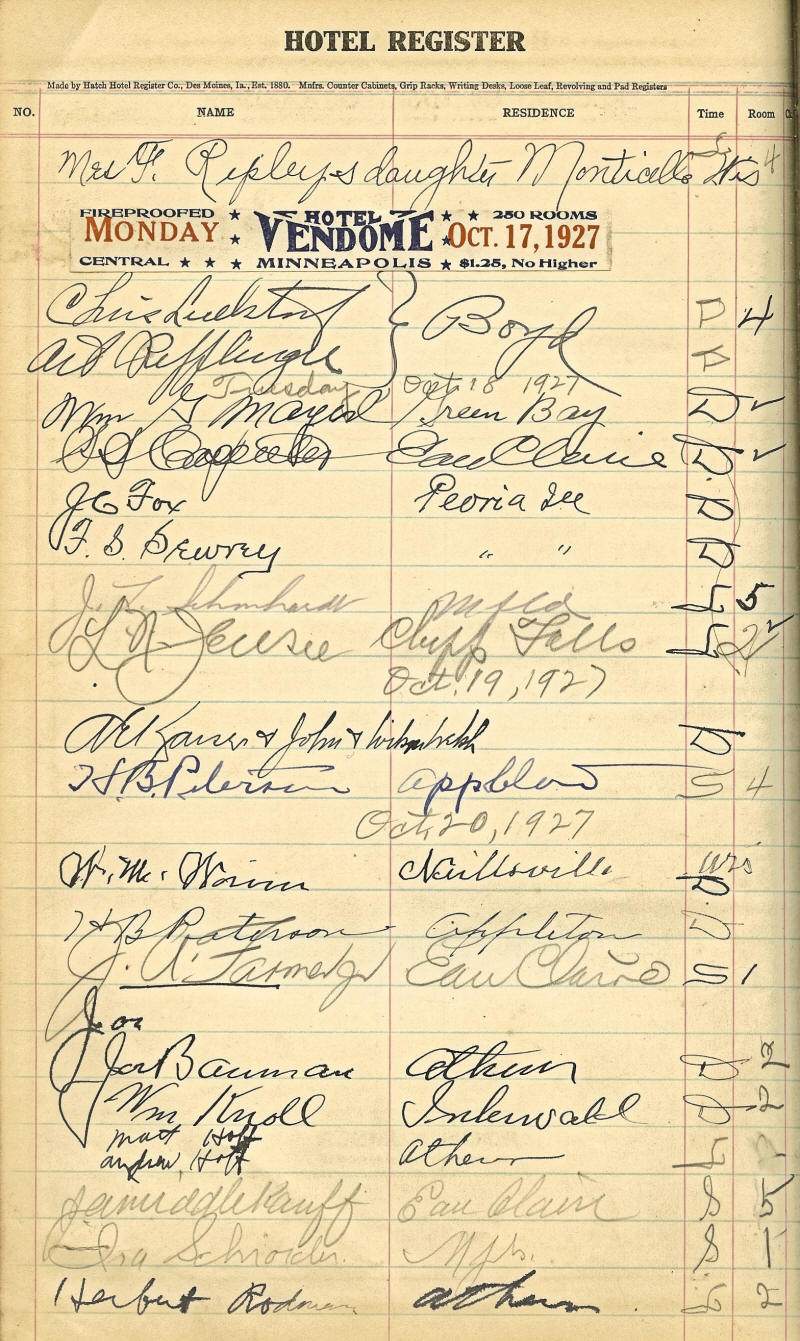 HOTEL REGISTER
Made by Hatch Hotel Register Co., Des Moines, Ia., Est. 1880. Mnfrs. Counter Cabinets, Grip Racks, Writing Desks, Loose Leaf, Revolving and Pad Registers
NO. NAME RESIDENCE Time Room
Mrs F. Ripley & daughter Monticello Wis 4
FIREPROOFED ★ HOTEL ★ ★ 250 ROOMS
MONDAY ★ VENDOME ★ OCT. 17, 1927
CENTRAL ★ ★ ★ MINNEAPOLIS ★ $1.25, No Higher
Chris } Boyd D 4
Art
Tuesday Oct 18 1927
Wm G Mayer Green Bay D 2
Eau Claire D 2
J C Fox Peoria Ill D
F. S. Dewrey " " D
J. L. Schonhardt Mfld L 5
L N Jensie Chipp Falls L 2
Oct. 19, 1927
A E Kaiser & John D
H. B. Peterson Appleton S 4
Oct. 20, 1927
W. M. Neillsville Wis D
H B Peterson Appleton D
J. A. Farmer Jr Eau Claire S 1
Joe
Joe Bauman Athens D 2
Wm Knoll D 2
Matt Hoff Athens L
Andrew Hoff
Eau Claire S 5
Ira Schroider Mpls. S 1
Herbert Rodman Athens L 2